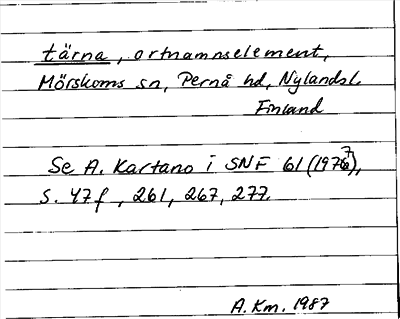 tärna, ortnamnselement,
Mörskoms sn, Pernå hd, Nylandsl.
Finland
Se A. Kartano i SNF 61 (1977),
s. 47 f, 261, 267, 277.
A. Km. 1987